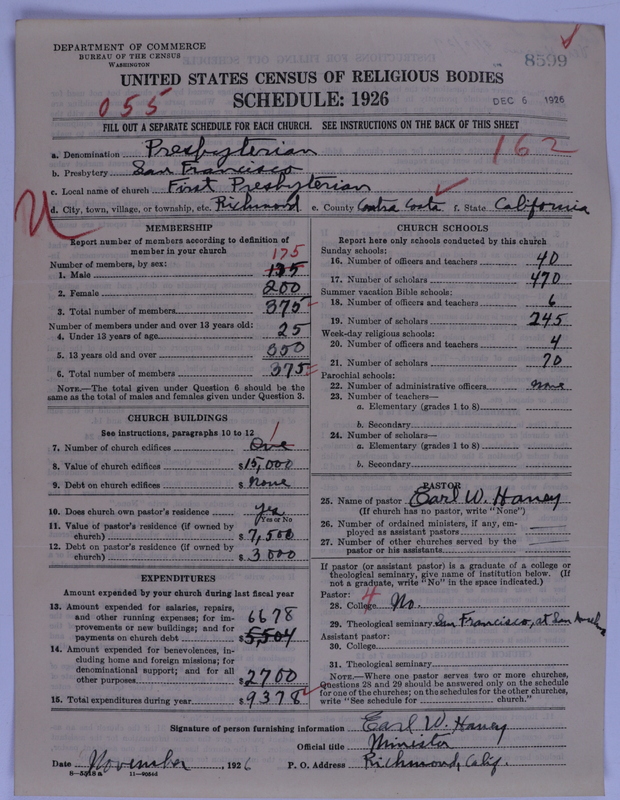 DEPARTMENT OF COMMERCE
BUREAU OF THE CENSUS
WASHINGTON
8599
UNITED STATES CENSUS OF RELIGIOUS BODIES
055
SCHEDULE: 1926
DEC 6 1926
FILL OUT A SEPARATE SCHEDULE FOR EACH CHURCH. SEE INSTRUCTIONS ON THE BACK OF THIS SHEET
a. Denomination Presbyterian 162
b. Presbytery San Francisco
c. Local name of church First Presbyterian
d. City, town, village, or township, etc. Richmond e. County Contra Costa f. State California
MEMBERSHIP
Report number of members according to definition of
member in your church
175
Number of members, by sex:
1. Male
2. Female 200
3. Total number of members 375
Number of members under and over 13 years old:
4. Under 13 years of age 25
5. 13 years old and over 350
6. Total number of members 375
NOTE.—The total given under Question 6 should be the
same as the total of males and females given under Question 3.
CHURCH BUILDINGS
See instructions, paragraphs 10 to 12
1
7. Number of church edifices One
8. Value of church edifices $15,000
9. Debt on church edifices $ None
10. Does church own pastor's residence yes
(Yes or No)
11. Value of pastor's residence (if owned by
church) $7,500
12. Debt on pastor's residence (if owned by
church) $3000
EXPENDITURES
Amount expended by your church during last fiscal year
13. Amount expended for salaries, repairs,
and other running expenses; for im-
provements or new buildings; and for
payments on church debt 6678
$5,504
14. Amount expended for benevolences, in-
cluding home and foreign missions; for
denominational support; and for all
other purposes $2700
15. Total expenditures during year $9378
CHURCH SCHOOLS
Report here only schools conducted by this church
Sunday schools:
16. Number of officers and teachers 40
17. Number of scholars 470
Summer vacation Bible schools:
18. Number of officers and teachers 6
19. Number of scholars 245
Week-day religious schools:
20. Number of officers and teachers 4
21. Number of scholars 70
Parochial schools:
22. Number of administrative officers none
23. Number of teachers—
a. Elementary (grades 1 to 8)
b. Secondary
24. Number of scholars—
a. Elementary (grades 1 to 8)
b. Secondary
PASTOR
25. Name of pastor Earl W. Haney
(If church has no pastor, write "None")
26. Number of ordained ministers, if any, em-
ployed as assistant pastors
27. Number of other churches served by the
pastor or his assistants
If pastor (or assistant pastor) is a graduate of a college or
theological seminary, give name of institution below. (If
not a graduate, write "No" in the space indicated.)
Pastor: 4
28. College No.
29. Theological seminary San Francisco, at San Anselmo
Assistant pastor:
30. College
31. Theological seminary
NOTE.—Where one pastor serves two or more churches,
Questions 28 and 29 should be answered only on the schedule
for one of the churches; on the schedules for the other churches,
write "See schedule for church."
Signature of person furnishing information Earl W. Haney
Official title Minister
Date November, 1926 P. O. Address Richmond, Calif.
8—5518a 11—9054d